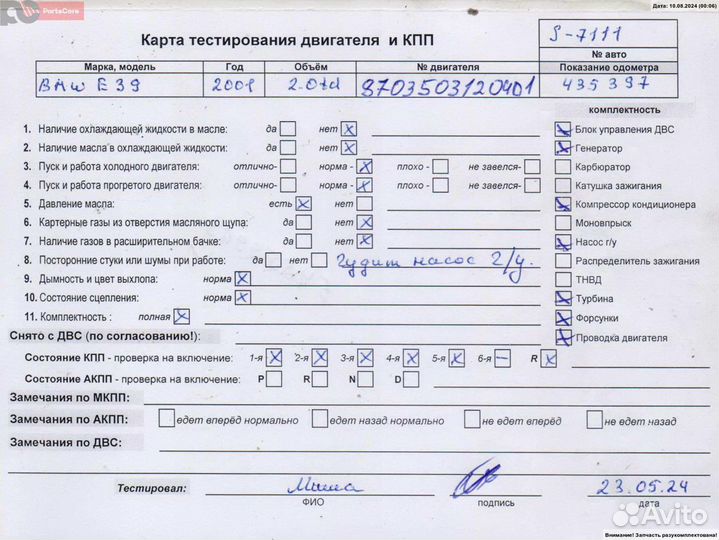 Дата: 10.08.2024 (00:06)
PartsCore
Карта тестирования двигателя и КПП
S-7111
№ авто
Марка, модель Год Объём № двигателя Показание одометра
BMW E39 2001 2.0td 8703503120401 435397
комплектность
1. Наличие охлаждающей жидкости в масле: да нет X
Блок управления ДВС X
2. Наличие масла в охлаждающей жидкости: да нет X
Генератор X
3. Пуск и работа холодного двигателя: отлично- норма - X плохо - не завелся-
Карбюратор
4. Пуск и работа прогретого двигателя: отлично- норма - X плохо - не завелся-
Катушка зажигания
5. Давление масла: есть X нет
Компрессор кондиционера X
6. Картерные газы из отверстия масляного щупа: да нет X
Моновпрыск
7. Наличие газов в расширительном бачке: да нет X
Насос г/у X
8. Посторонние стуки или шумы при работе: да нет Гудит насос г/у.
Распределитель зажигания
9. Дымность и цвет выхлопа: норма X
ТНВД
10. Состояние сцепления: норма X
Турбина X
11. Комплектность : полная X
Форсунки X
Снято с ДВС (по согласованию!):
Проводка двигателя X
Состояние КПП - проверка на включение: 1-я X 2-я X 3-я X 4-я X 5-я X 6-я — R X
Состояние АКПП - проверка на включение: P R N D
Замечания по МКПП:
Замечания по АКПП: едет вперёд нормально едет назад нормально не едет вперёд не едет назад
Замечания по ДВС:
Тестировал: Миша 23.05.24
ФИО подпись дата
Avito
Внимание! Запчасть разукомплектована!